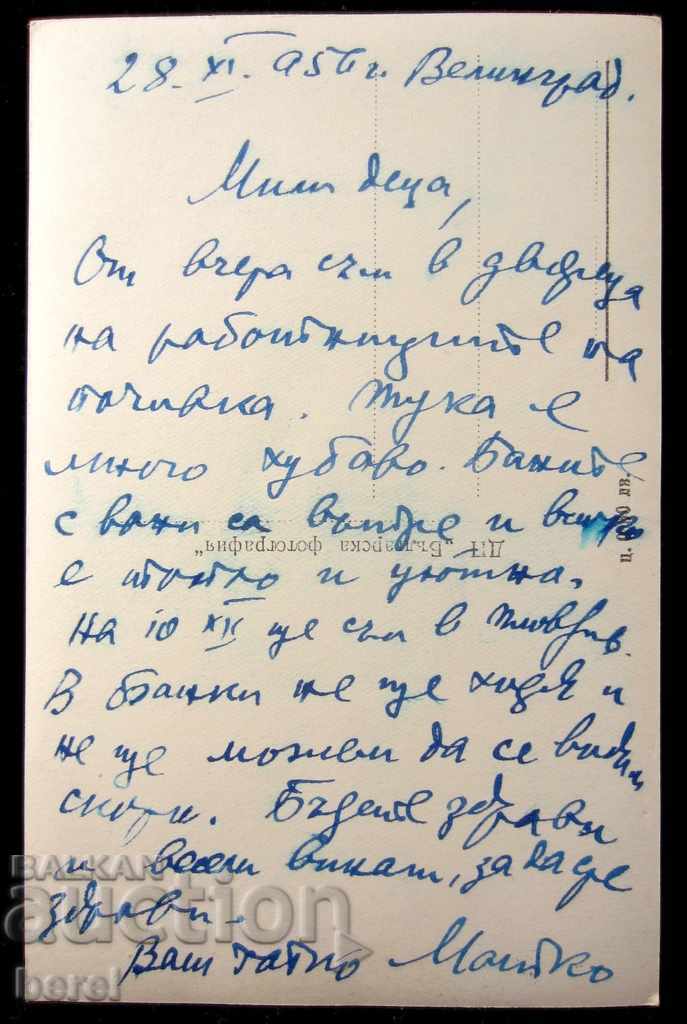 28. XI. 956 г. Велинград.
Мили деца,
От вчера съм в двореца
на работниците на
почивка. Тука е
много хубаво. Баните
с вани са вътре и всичко
е топло и уютна.
На 10 XII ще съм в Пловдив.
В Банки не ще ходя и
не ще можем да се видим
скоро. Бъдете здрави
и весели винаги, за да сте
здрави.
Ваш татко Матко
ДП "Българска фотография"
BALKAN
auction
berel